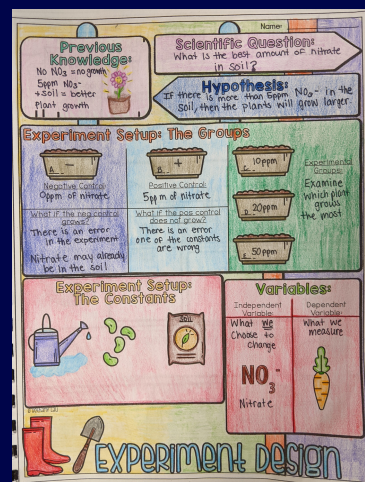 Name:
Previous
Knowledge:
No NO3 = no growth
5ppm NO3-
+ soil = better
Plant growth
Scientific Question:
What is the best amount of nitrate
in soil?
Hypothesis:
If there is more than 5ppm NO3- in the
soil, then the plants will grow larger.
Experiment Setup: The Groups
A. -
Negative Control:
0ppm of nitrate
What if the neg control
grows?
There is an error
in the experiment
Nitrate may already
be in the soil
B. +
Positive Control:
5ppm of nitrate
What if the pos control
does not grow?
There is an error
one of the constants
are wrong
C. 10ppm
D. 20ppm
E. 50ppm
Experimental
Groups:
Examine
which plant
grows
the most
Experiment Setup:
The Constants
SOIL
Variables:
Independent
Variable:
What we
choose to
change
NO3-
Nitrate
Dependent
Variable:
What we
measure
Experiment Design